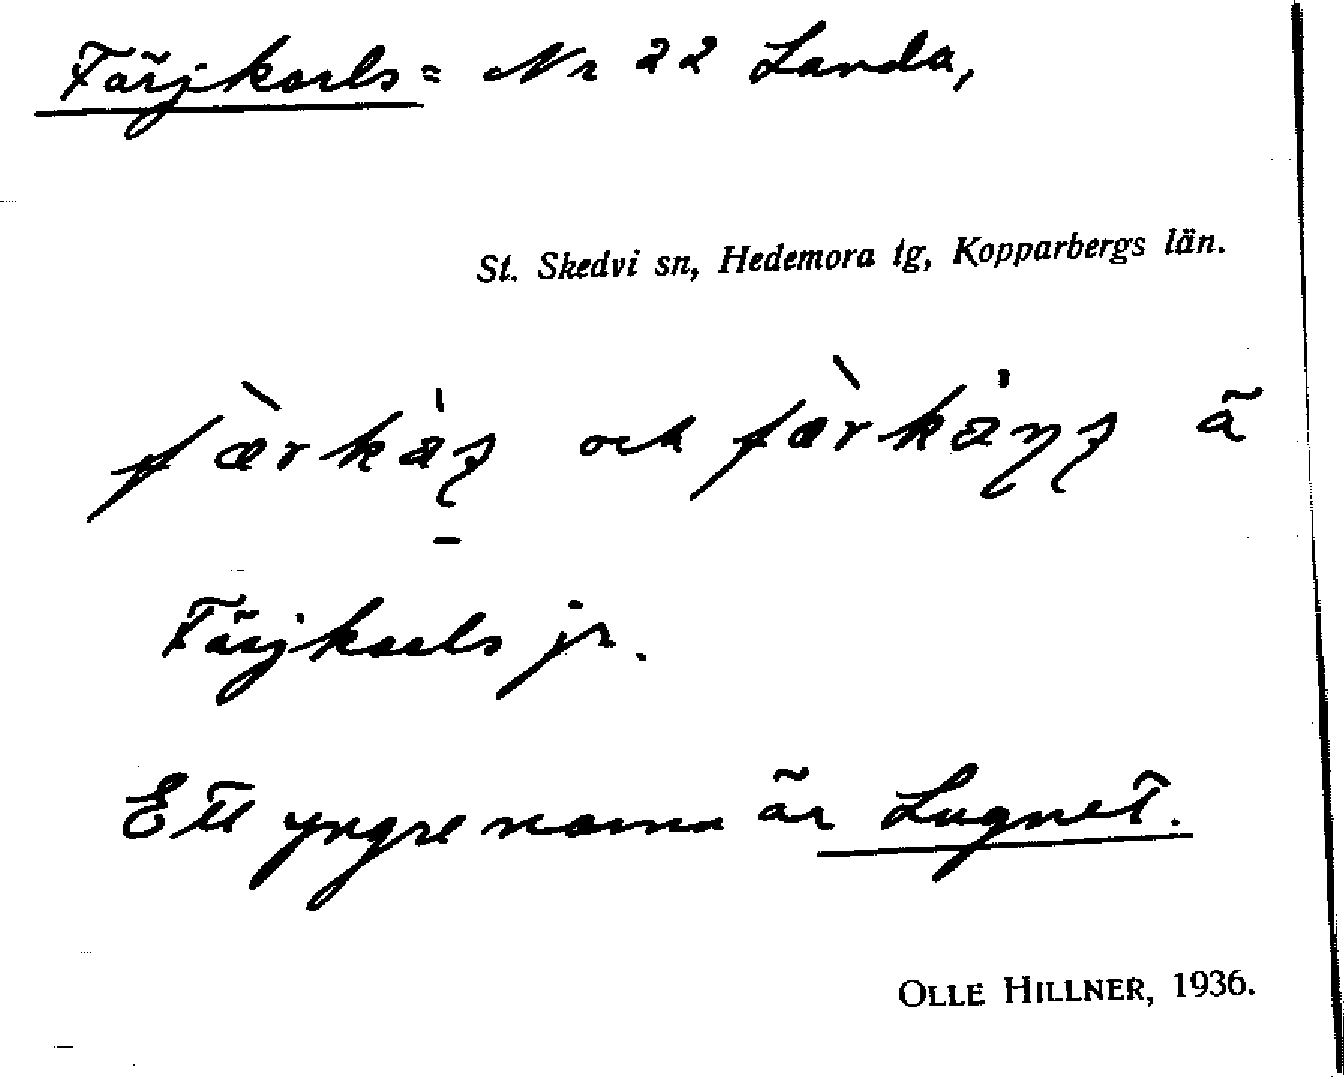 Färjkarls = Nr 22 Landa,
St. Skedvi sn, Hedemora tg, Kopparbergs län.
och å
Färjkarls jr.
Ett yngre namn är Lugnet.
OLLE HILLNER, 1936.